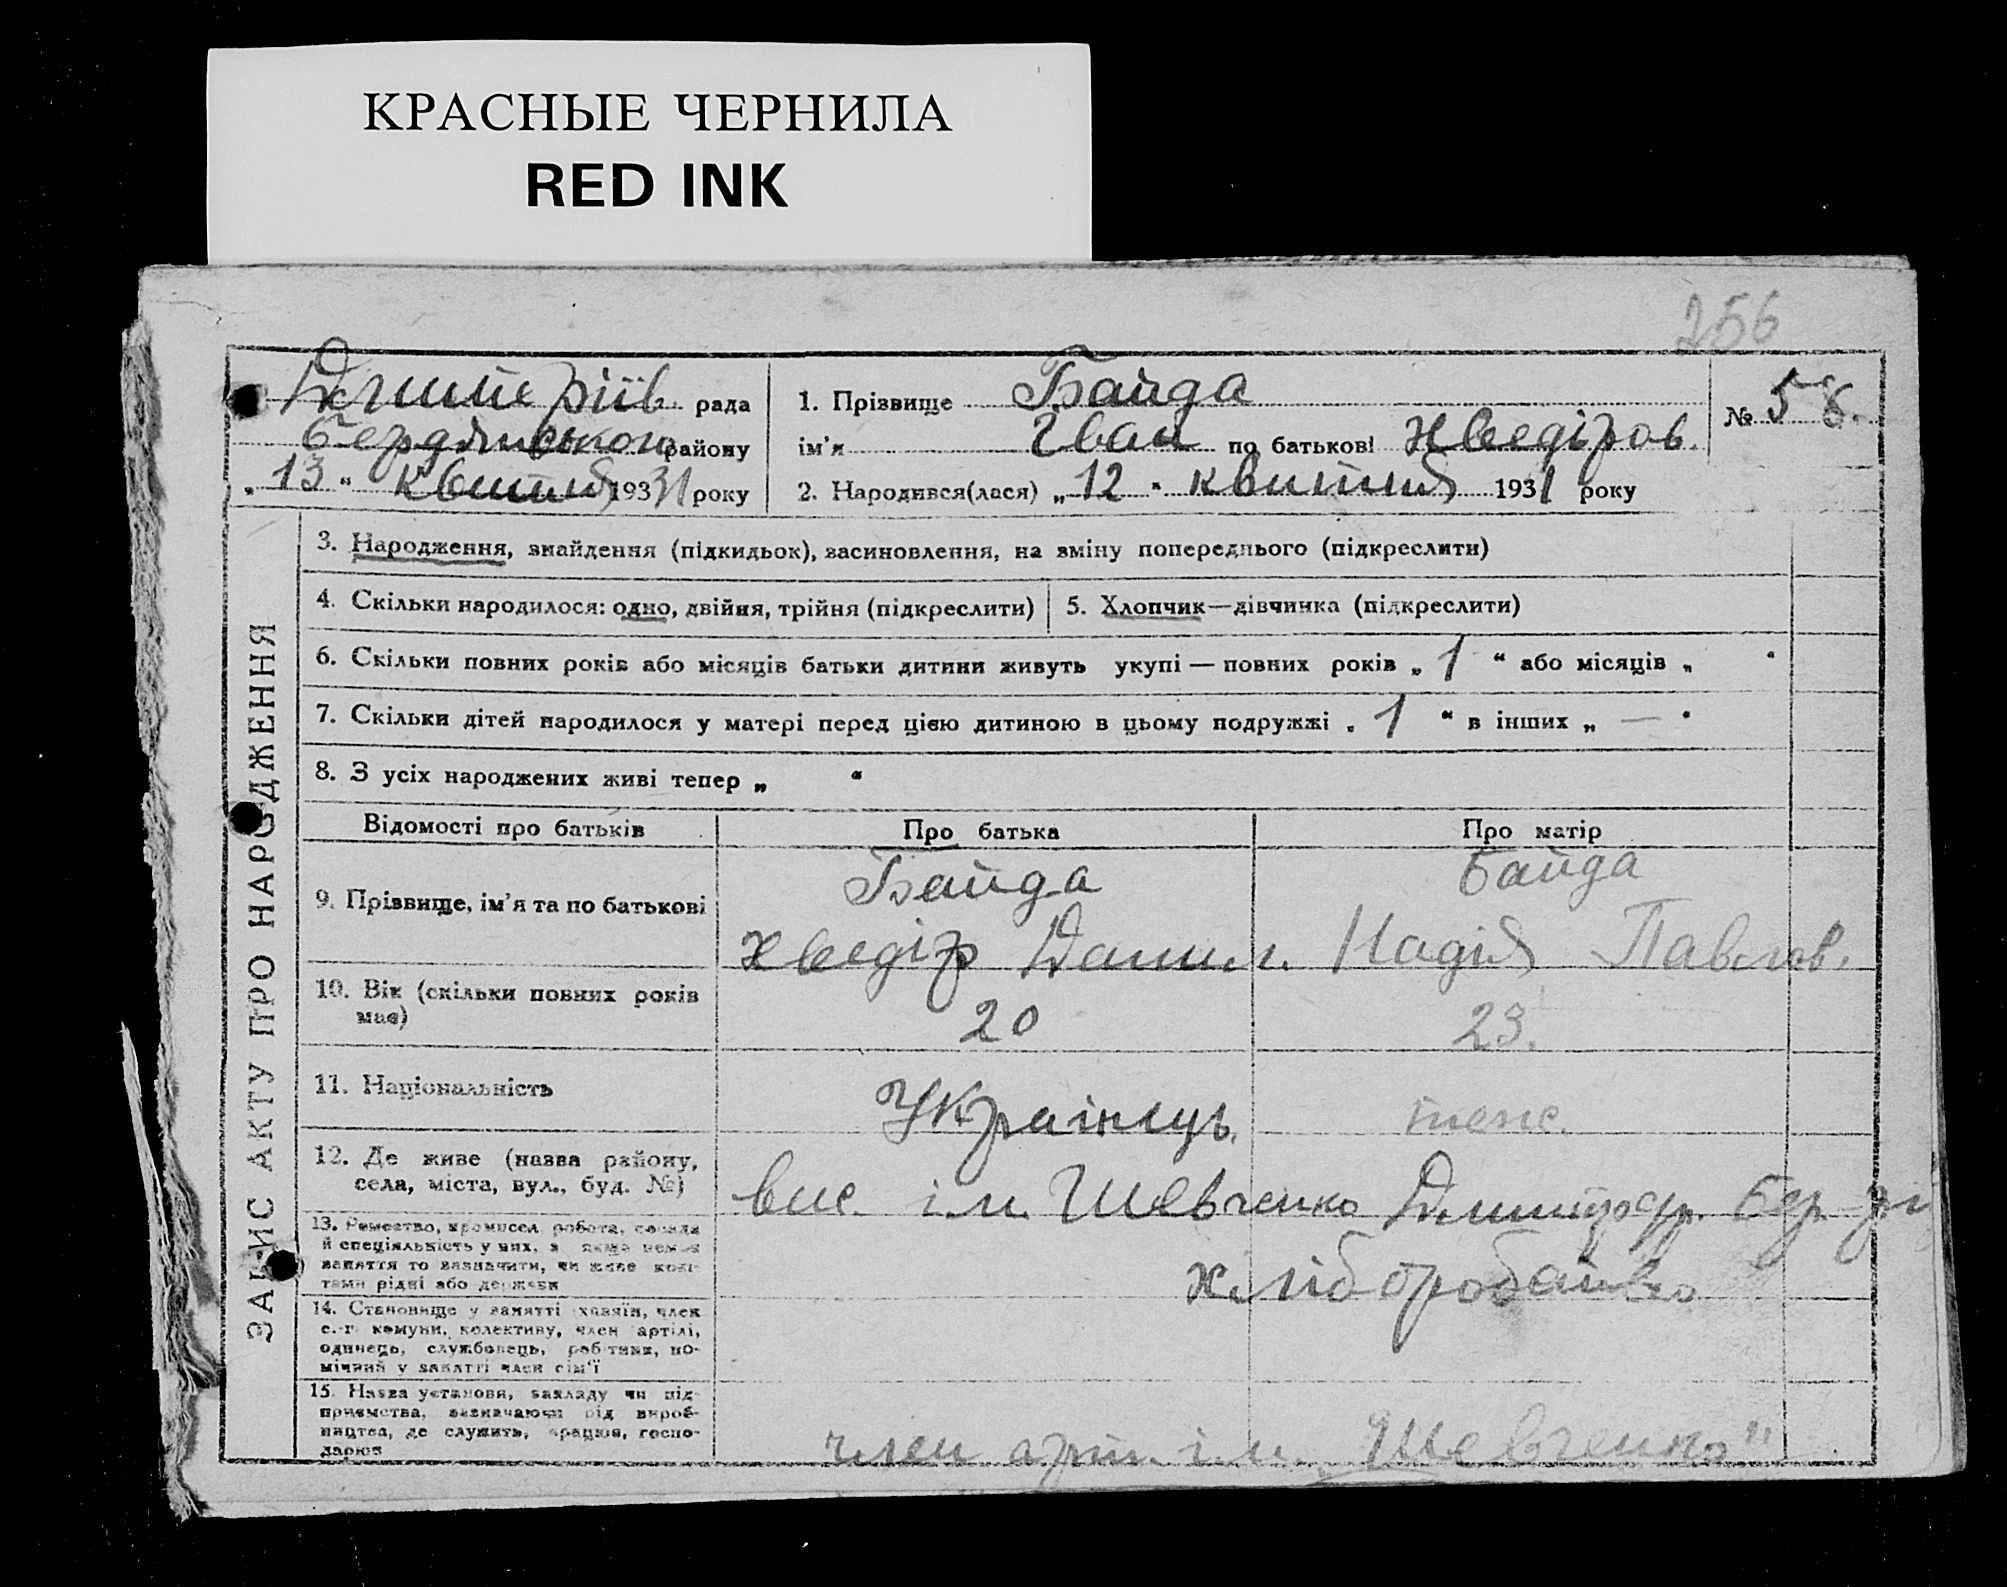 КРАСНЫЕ ЧЕРНИЛА
RED INK
256
Дмитріїв. рада
Бердянського району
„ 13 “ квітня 1931 року
1. Прізвище Байда
ім'я Іван по батькові Хведіров.
№ 58.
2. Народився(лася) „ 12 “ квітня 1931 року
ЗАПИС АКТУ ПРО НАРОДЖЕННЯ
3. Народження, знайдення (підкидьок), засиновлення, на зміну попереднього (підкреслити)
4. Скільки народилося: одно, двійня, трійня (підкреслити)
5. Хлопчик—дівчинка (підкреслити)
6. Скільки повних років або місяців батьки дитини живуть укупі — повних років „ 1 “ або місяців „ “
7. Скільки дітей народилося у матері перед цією дитиною в цьому подружжі „ 1 “ в інших „ — “
8. З усіх народжених живі тепер „ “
Відомості про батьків Про батька Про матір
9. Прізвище, ім'я та по батькові
Байда Байда
Хведір Данил. Надія Павлов.
10. Вік (скільки повних років має)
20 23.
11. Національність
Українць. теж.
12. Де живе (назва району,
села, міста, вул., буд. №)
вис. ім. Шевченко Бер.
13. Ремество, промисел, робота, посада
й спеціяльність у них, а якщо немає
заняття то зазначити, чи живе кош-
тами рідні або держави
хлібробство
14. Становище у занятті хазяїн, член
с.-г. комуни, колективу, член артілі,
одинець, службовець, робітник, по-
мічний у занятті член сім'ї
15. Назва установи, закладу чи під-
приємства, зазначаючи рід вироб-
ництва, де служить, працює, госпо-
дарює
член арт. ім. „Шевченко"